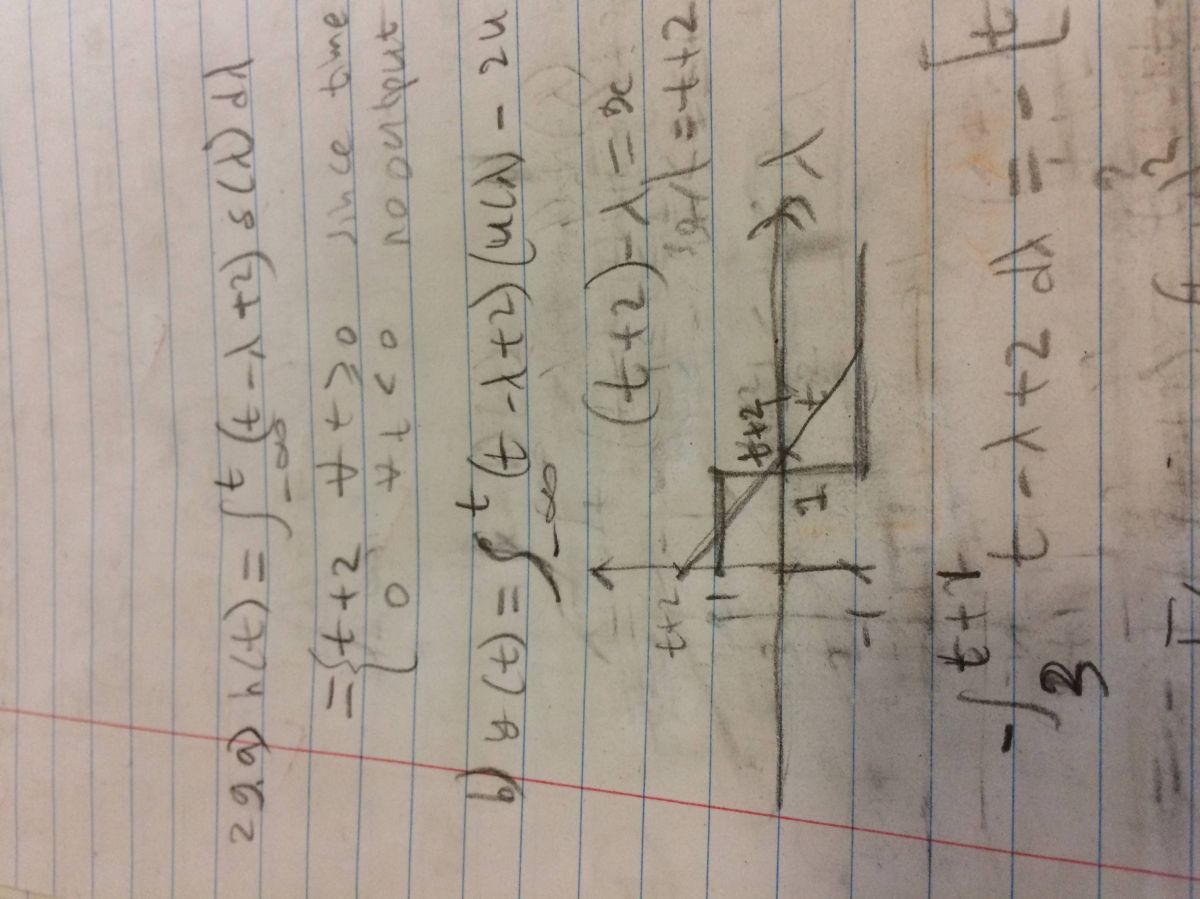 2g a) h(t) = ∫_{-∞}^{t} (t-λ+2) δ(λ) dλ
= { t+2 ∀ t ≥ 0 since time
0 ∀ t < 0 no output
b) y(t) = ∫_{-∞}^{t} (t-λ+2)(u(λ) - 2u
(t+2)-λ = x
λ = t+2
t+2
1
t+2
λ
1
t
-1
-∫_{3}^{t+1} t-λ+2 dλ = - [t
= -